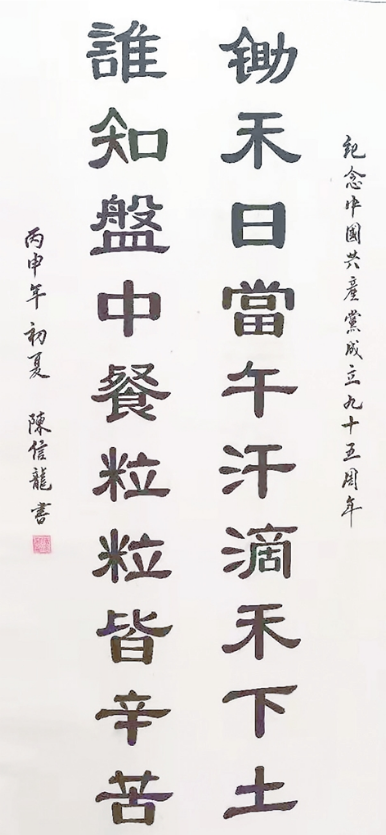 紀念中國共產黨成立九十五周年
鋤禾日當午汗滴禾下土
誰知盤中餐粒粒皆辛苦
丙申年初夏 陳信龍書